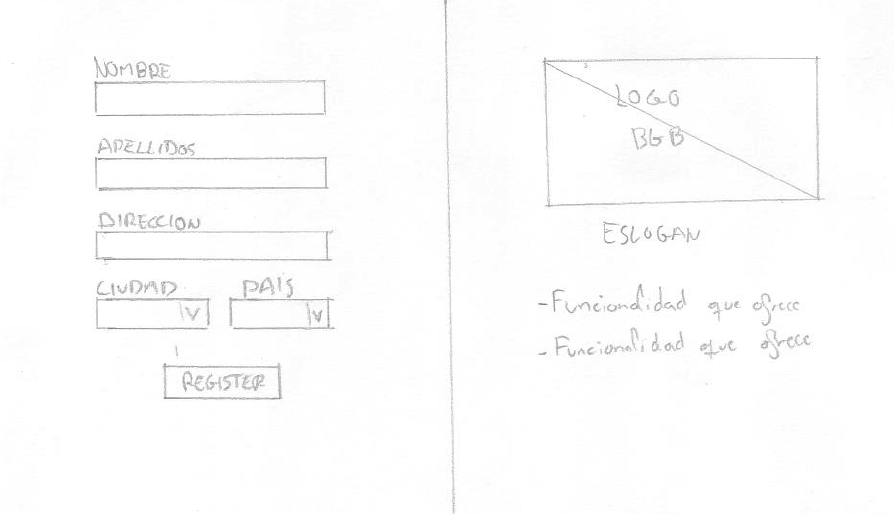 NOMBRE
APELLIDOS
DIRECCION
CIUDAD PAIS
REGISTER
LOGO
BGB
ESLOGAN
-Funcionalidad que ofrece
-Funcionalidad que ofrece